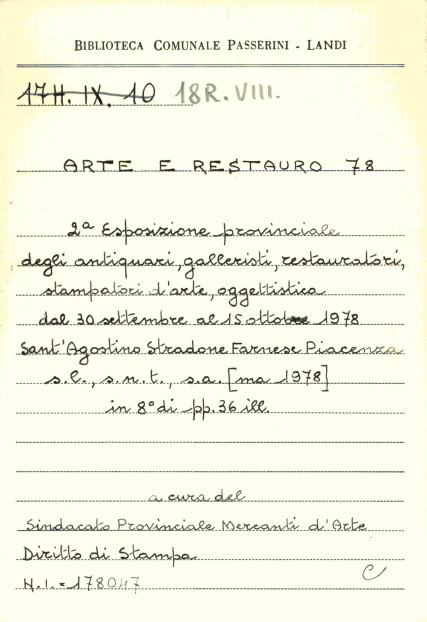 BIBLIOTECA COMUNALE PASSERINI - LANDI
17H. IX. 10 18R. VIII.
ARTE E RESTAURO 78
2ª Esposizione provinciale
degli antiquari, galleristi, restauratori,
stampatori d'arte, oggettistica
dal 30 settembre al 15 ottobre 1978
Sant'Agostino Stradone Farnese Piacenza
s.l., s.n.t., s.a. [ma 1978]
in 8° di pp. 36 ill.
a cura del
Sindacato Provinciale Mercanti d'Arte
Diritto di Stampa
N.I. = 178047
C